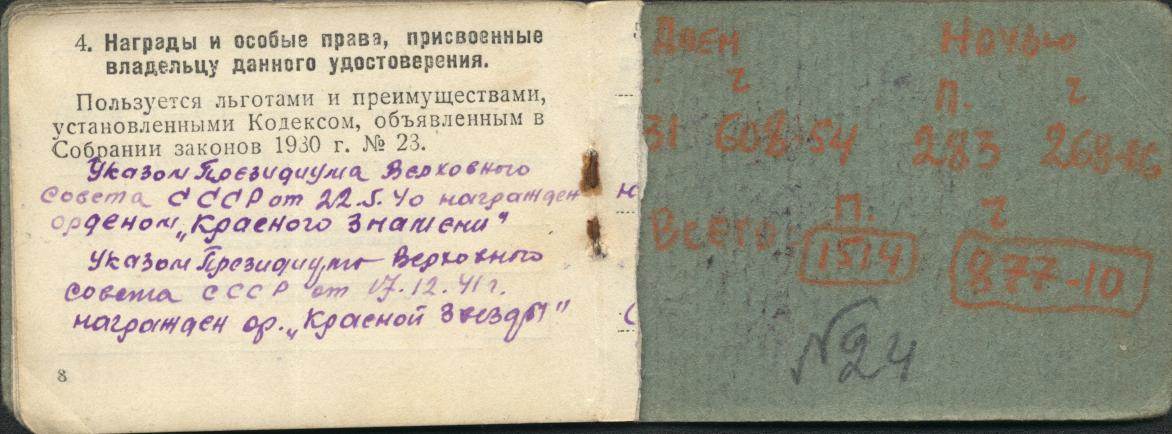 4. Награды и особые права, присвоенные
владельцу данного удостоверения.
Пользуется льготами и преимуществами,
установленными Кодексом, объявленным в
Собрании законов 1930 г. № 23.
Указом Президиума Верховного
совета СССР от 22.5.40 награжден
орденом „Красного Знамени"
Указом Президиума Верховного
совета СССР от 17.12.41 г.
награжден ор. „Красной Звезды"
8
Днем Ночью
ч п. ч
31 608-54 283 268-16
п. ч
Всего 1514 877-10
№24